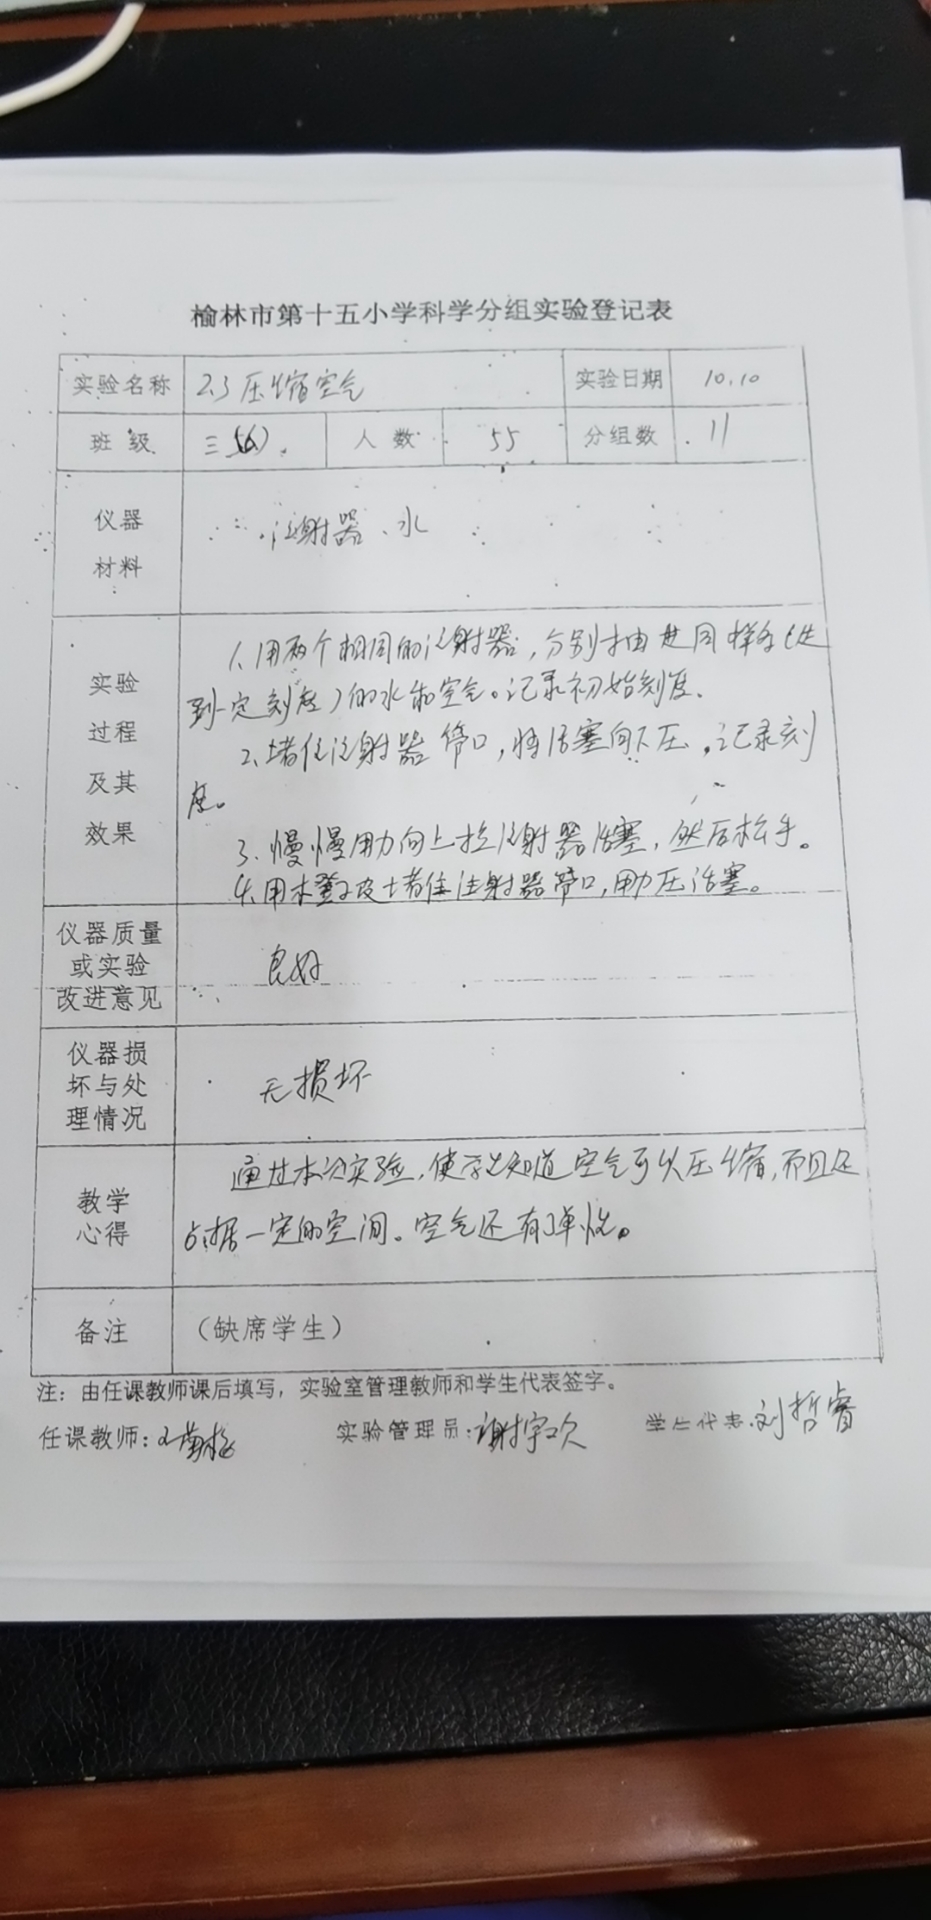 榆林市第十五小学科学分组实验登记表
实验名称 2.3 压缩空气 实验日期 10.10
班级 三(6) 人数 55 分组数 11
仪器 注射器、水
材料
1.用两个相同的注射器,分别抽进同样多(进
实验 到一定刻度)的水和空气。记录初始刻度.
过程 2.堵住注射器管口,将活塞向下压,记录刻
及其 度。
效果 3.慢慢用力向上拉注射器活塞,然后松手。
4.用木塞子皮堵住注射器管口,用力压活塞。
仪器质量
或实验 良好
改进意见
仪器损
坏与处 无损坏
理情况
教学 通过本次实验,使学生知道空气可以压缩,而且还
心得 占据一定的空间。空气还有弹性。
备注 (缺席学生)
注:由任课教师课后填写,实验室管理教师和学生代表签字。
任课教师: 实验管理员:谢宇欢 学生代表:刘哲睿